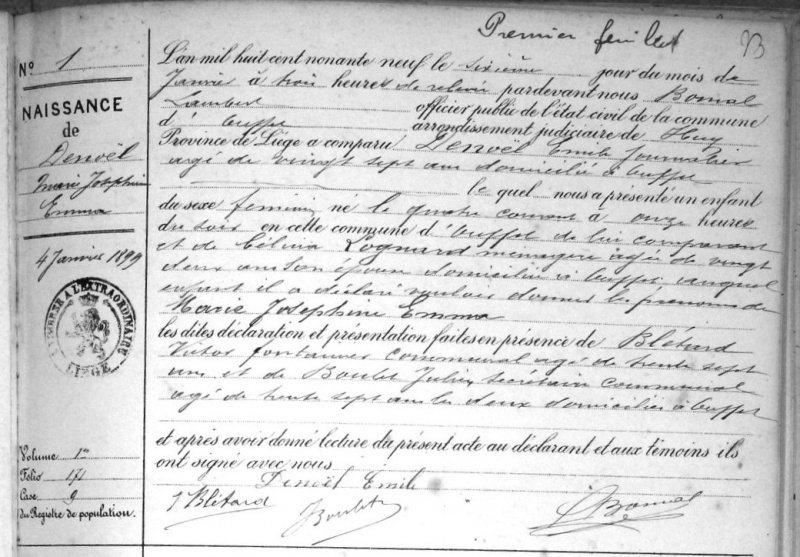 Premier feuillet
23
N° 1
NAISSANCE
de
Denoël
Marie Josephine
Emma
4 Janvier 1899
TIMBRE A L'EXTRAORDINAIRE
LIÉGE
Volume 1er
Folio 171
Case 9
du Registre de population.
L'an mil huit cent nonante neuf le sixième jour du mois de
Janvier à trois heures de relevée pardevant nous Bomal
Lambert officier public de l'état civil de la commune
d' Ouffet arrondissement judiciaire de Huy
Province de Liége a comparu Denoël Emile journalier
agé de vingt sept ans domicilié à Ouffet
le quel nous a présenté un enfant
du sexe feminin né le quatre courant à onze heures
du soir en cette commune d'Ouffet de lui comparant
et de Célina Lognard menagère agée de vingt
deux ans son épouse domiciliée à Ouffet, auquel
enfant il a déclaré vouloir donner les prénoms de
Marie Josephine Emma
les dites déclaration et présentation faites en présence de Blétard
Victor fontainier communal agé de trente sept
ans et de Boulet Julien Secrétaire communal
agé de trente sept ans les deux domiciliés à Ouffet
et après avoir donné lecture du présent acte au déclarant et aux témoins ils
ont signé avec nous
Denoël Emile
Blétard Boulet L Bomal